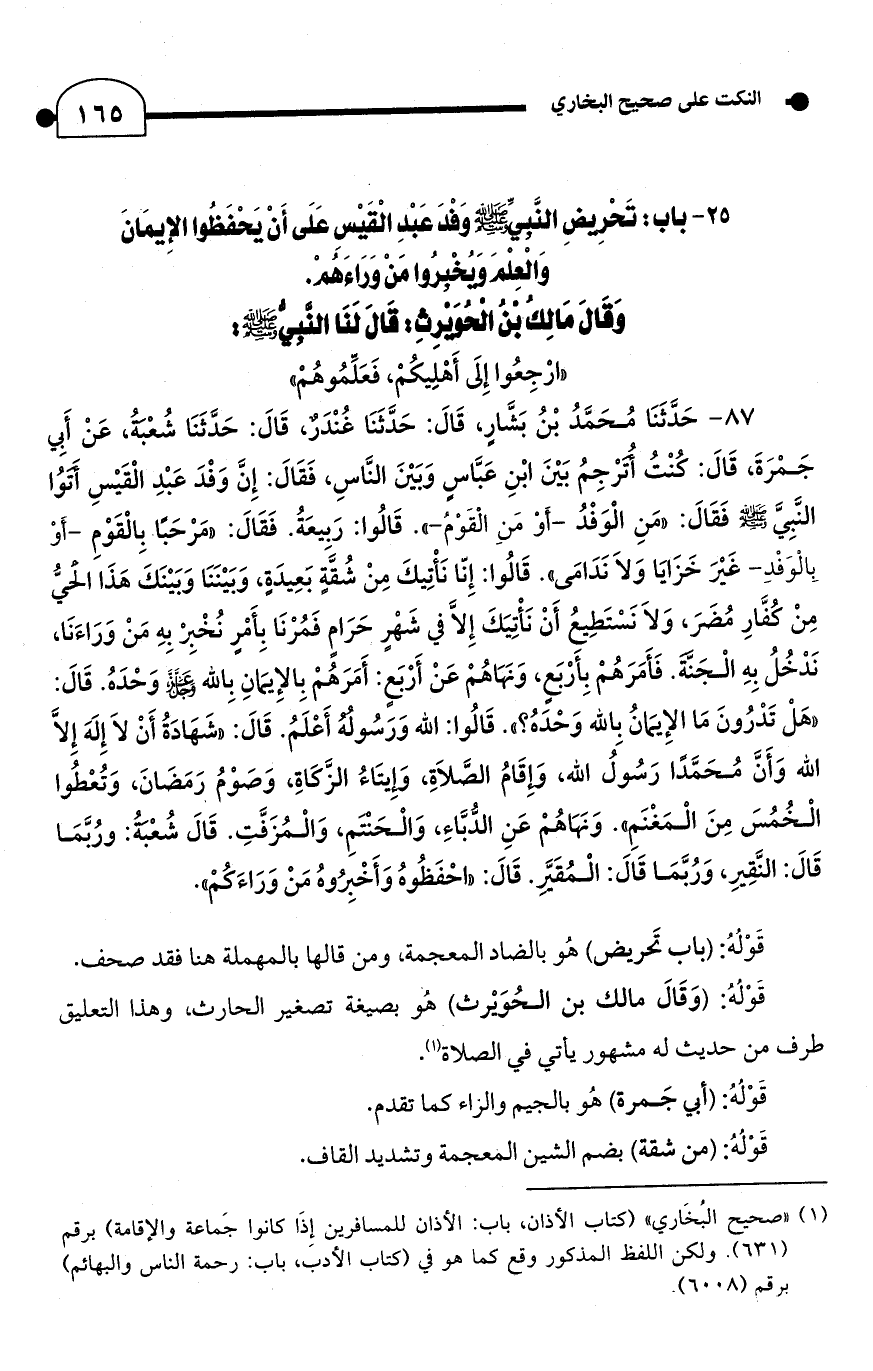 النكت على صحيح البخاري
١٦٥
٢٥- باب: تَحْرِيضِ النَّبِيِّ ﷺ وَفْدَ عَبْدِ الْقَيْسِ عَلَى أَنْ يَحْفَظُوا الإِيمَانَ
وَالْعِلْمَ وَيُخْبِرُوا مَنْ وَرَاءَهُمْ.
وَقَالَ مَالِكُ بْنُ الْحُوَيْرِثِ: قَالَ لَنَا النَّبِيُّ ﷺ:
«ارْجِعُوا إِلَى أَهْلِيكُمْ، فَعَلِّمُوهُمْ»
٨٧- حَدَّثَنَا مُـحَمَّدُ بْنُ بَشَّارٍ، قَالَ: حَدَّثَنَا غُنْدَرٌ، قَالَ: حَدَّثَنَا شُعْبَةُ، عَنْ أَبِي
جَـمْرَةَ، قَالَ: كُنْتُ أُتَرْجِمُ بَيْنَ ابْنِ عَبَّاسٍ وَبَيْنَ النَّاسِ، فَقَالَ: إِنَّ وَفْدَ عَبْدِ الْقَيْسِ أَتَوُا
النَّبِيَّ ﷺ فَقَالَ: «مَنِ الْوَفْدُ -أَوْ مَنِ الْقَوْمُ-». قَالُوا: رَبِيعَةُ. فَقَالَ: «مَرْحَبًا بِالْقَوْمِ -أَوْ
بِالْوَفْدِ- غَيْرَ خَزَايَا وَلاَ نَدَامَى». قَالُوا: إِنَّا نَأْتِيكَ مِنْ شُقَّةٍ بَعِيدَةٍ، وَبَيْنَنَا وَبَيْنَكَ هَذَا الْحَيُّ
مِنْ كُفَّارِ مُضَرَ، وَلاَ نَسْتَطِيعُ أَنْ نَأْتِيَكَ إِلاَّ فِي شَهْرٍ حَرَامٍ فَمُرْنَا بِأَمْرٍ نُخْبِرْ بِهِ مَنْ وَرَاءَنَا،
نَدْخُلُ بِهِ الْـجَنَّةَ. فَأَمَرَهُمْ بِأَرْبَعٍ، وَنَهَاهُمْ عَنْ أَرْبَعٍ: أَمَرَهُمْ بِالإِيمَانِ بِالله عَزَّ وَجَلَّ وَحْدَهُ. قَالَ:
«هَلْ تَدْرُونَ مَا الإِيمَانُ بِالله وَحْدَهُ؟». قَالُوا: الله وَرَسُولُهُ أَعْلَمُ. قَالَ: «شَهَادَةُ أَنْ لاَ إِلَهَ إِلاَّ
الله وَأَنَّ مُـحَمَّدًا رَسُولُ الله، وَإِقَامُ الصَّلاَةِ، وَإِيتَاءُ الزَّكَاةِ، وَصَوْمُ رَمَضَانَ، وَتُعْطُوا
الْـخُمُسَ مِنَ الْـمَغْنَمِ». وَنَهَاهُمْ عَنِ الدُّبَّاءِ، وَالْـحَنْتَمِ، وَالْـمُزَفَّتِ. قَالَ شُعْبَةُ: ورُبَّمَـا
قَالَ: النَّقِيرِ، وَرُبَّمَـا قَالَ: الْـمُقَيَّرِ. قَالَ: «احْفَظُوهُ وَأَخْبِرُوهُ مَنْ وَرَاءَكُمْ».
قَوْلُهُ: (باب تَحريض) هُو بالضاد المعجمة، ومن قالها بالمهملة هنا فقد صحف.
قَوْلُهُ: (وَقَال مالك بن الـحُوَيْرث) هُو بصيغة تصغير الحارث، وهذا التعليق
طرف من حديث له مشهور يأتي في الصلاة(١).
قَوْلُهُ: (أبي جَـمرة) هُو بالجيم والزاء كما تقدم.
قَوْلُهُ: (من شقة) بضم الشين المعجمة وتشديد القاف.
(١) «صحيح البُخَاري» (كتاب الأذان، باب: الأذان للمسافرين إِذَا كانوا جَماعة والإقامة) برقم
(٦٣١). ولكن اللفظ المذكور وقع كما هو في (كتاب الأدب، باب: رحمة الناس والبهائم)
برقم (٦٠٠٨).